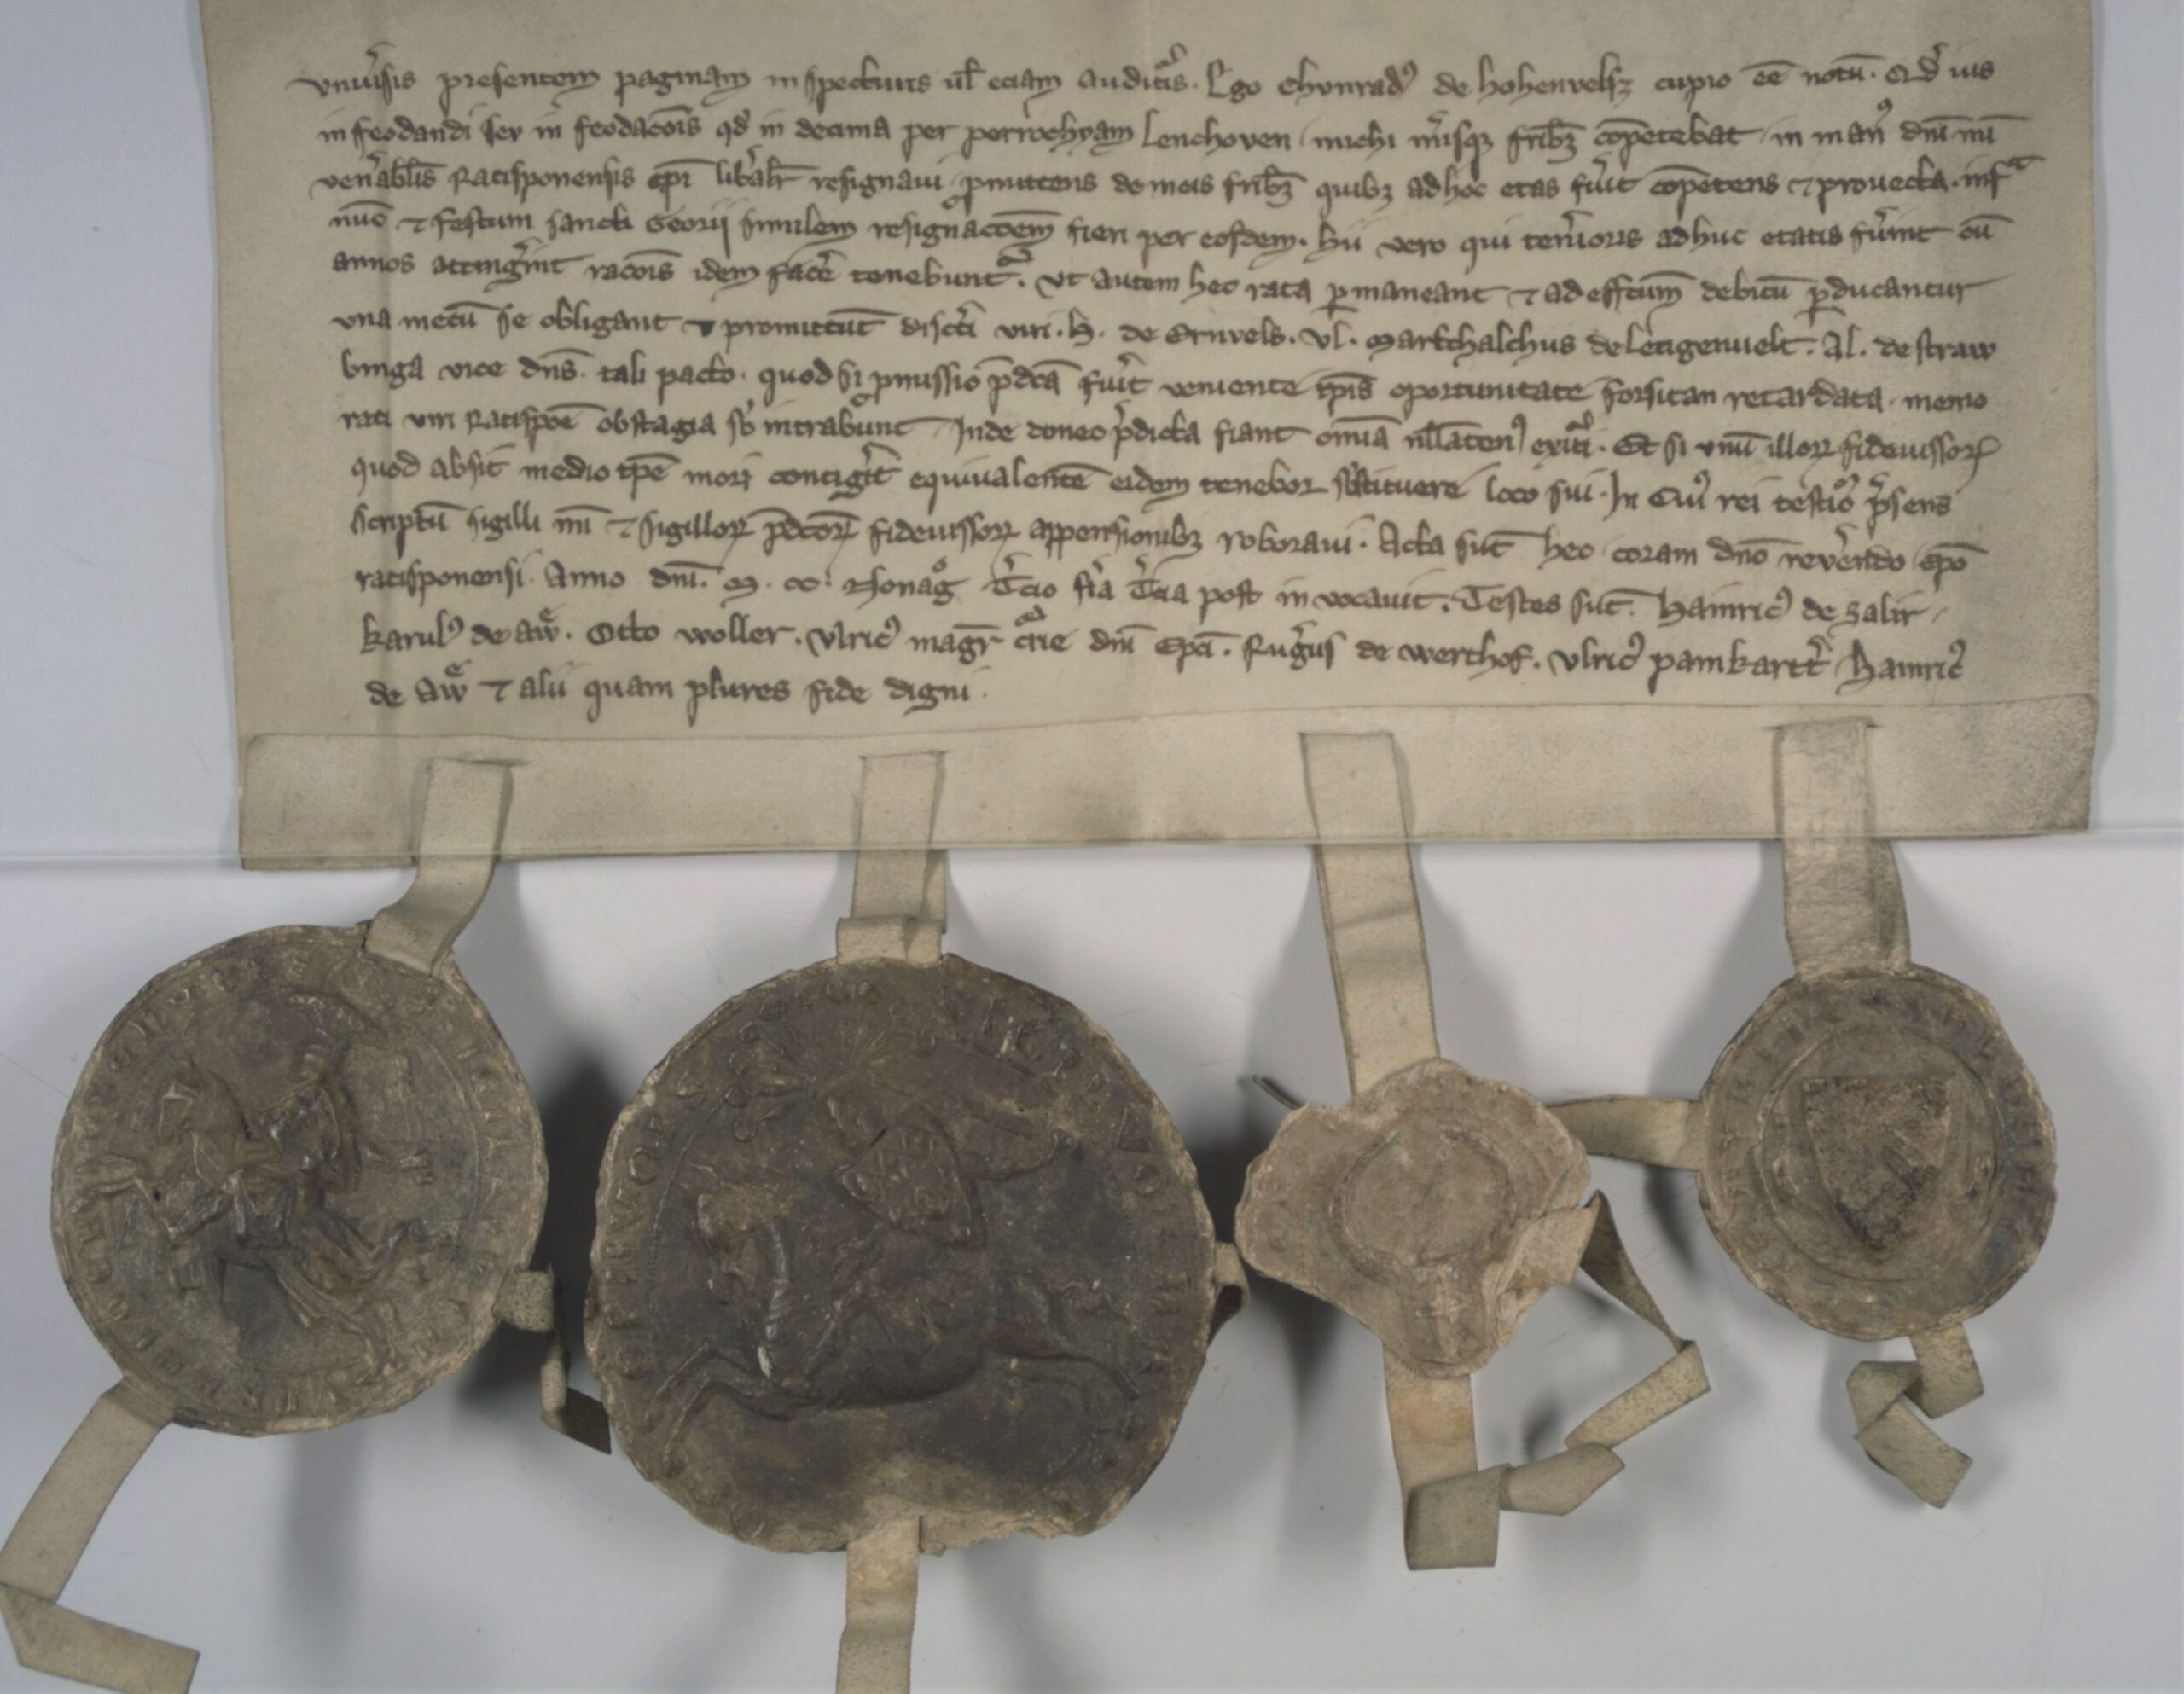 vniu̓sis presentem paginam inspecturis ul̄ eciam auditur̓. Ego Chvnradꝰ de hohenvelsz cupio ee̅ notū. Qd̓ ius
infeodandi sev in feodac̅o̅is qd̓ in decima per parrochyam Lenchoven michi meisqꝫ fribꝫ co̅petebat in manꝰ dn̅i mi̅
ven̓ablis Ratisponensis ep̅i lib̓alr̅ resignaui ꝓmittens de meis fribꝫ quibꝫ ad hoc etas fu̓it co̅petens ⁊ prouecta. infᵃ
nu̅c ⁊ festum sancti Georij similem resignac̅o̅em fieri per eosdem. hii vero qui ten̓ioris adhuc etatis fu̓int cu̅
annos atting̓int rac̅o̅is idem fac̓e tenebuntᵘʳ. vt autem hec rata ꝑmaneant ⁊ ad effc̅um debitu̅ ꝑducantur
vna mecu̅ se obligant ⁊ promittu̅t discr̓ti viri. h. de Ernvels. vl. Marschalchus de Lengenuelt. Al. de straw
binga vice dn̅s. tali pacto. quod si ꝓmissio p̅dc̅a fu̓it veniente tp̅is oportunitate forsitan retardata. memo
rati viri Ratispo̅e obstagia sb̓intrabunt Inde donec p̓dicta fiant om̅ia nllaten̅ꝰ exitᵘ̓i. Et si vnu̅ illoꝝ fideiussoꝝ
quod absit medio tp̅e mori contig̓it equiualente̅ eidem tenebor sb̓stituere loco sui. In cuiꝰ rei testi̅oᵐ p̓sens
scriptu̅ sigilli mi̅ ⁊ sigilloꝝ p̅dc̅oꝝ fideiussoꝝ appensionibꝫ roboraui. Acta su̅t hec coram dn̅o rev̓endo ep̅o
ratisponensi. Anno dn̅i. M. cc. Nonagᵒ T̓cio f̓ia T̓cia post in vocauit. Testes su̅t. Hainricꝰ de Salir
karulꝰ de aẘ. Otto woller. vlricꝰ magr̅ c̅rie dn̅i Ep̅i. Rug̓us de werthof. vlricꝰ pamkartt̓ Hainricꝰ
de Aẘ ⁊ alii quam plures fide digni.